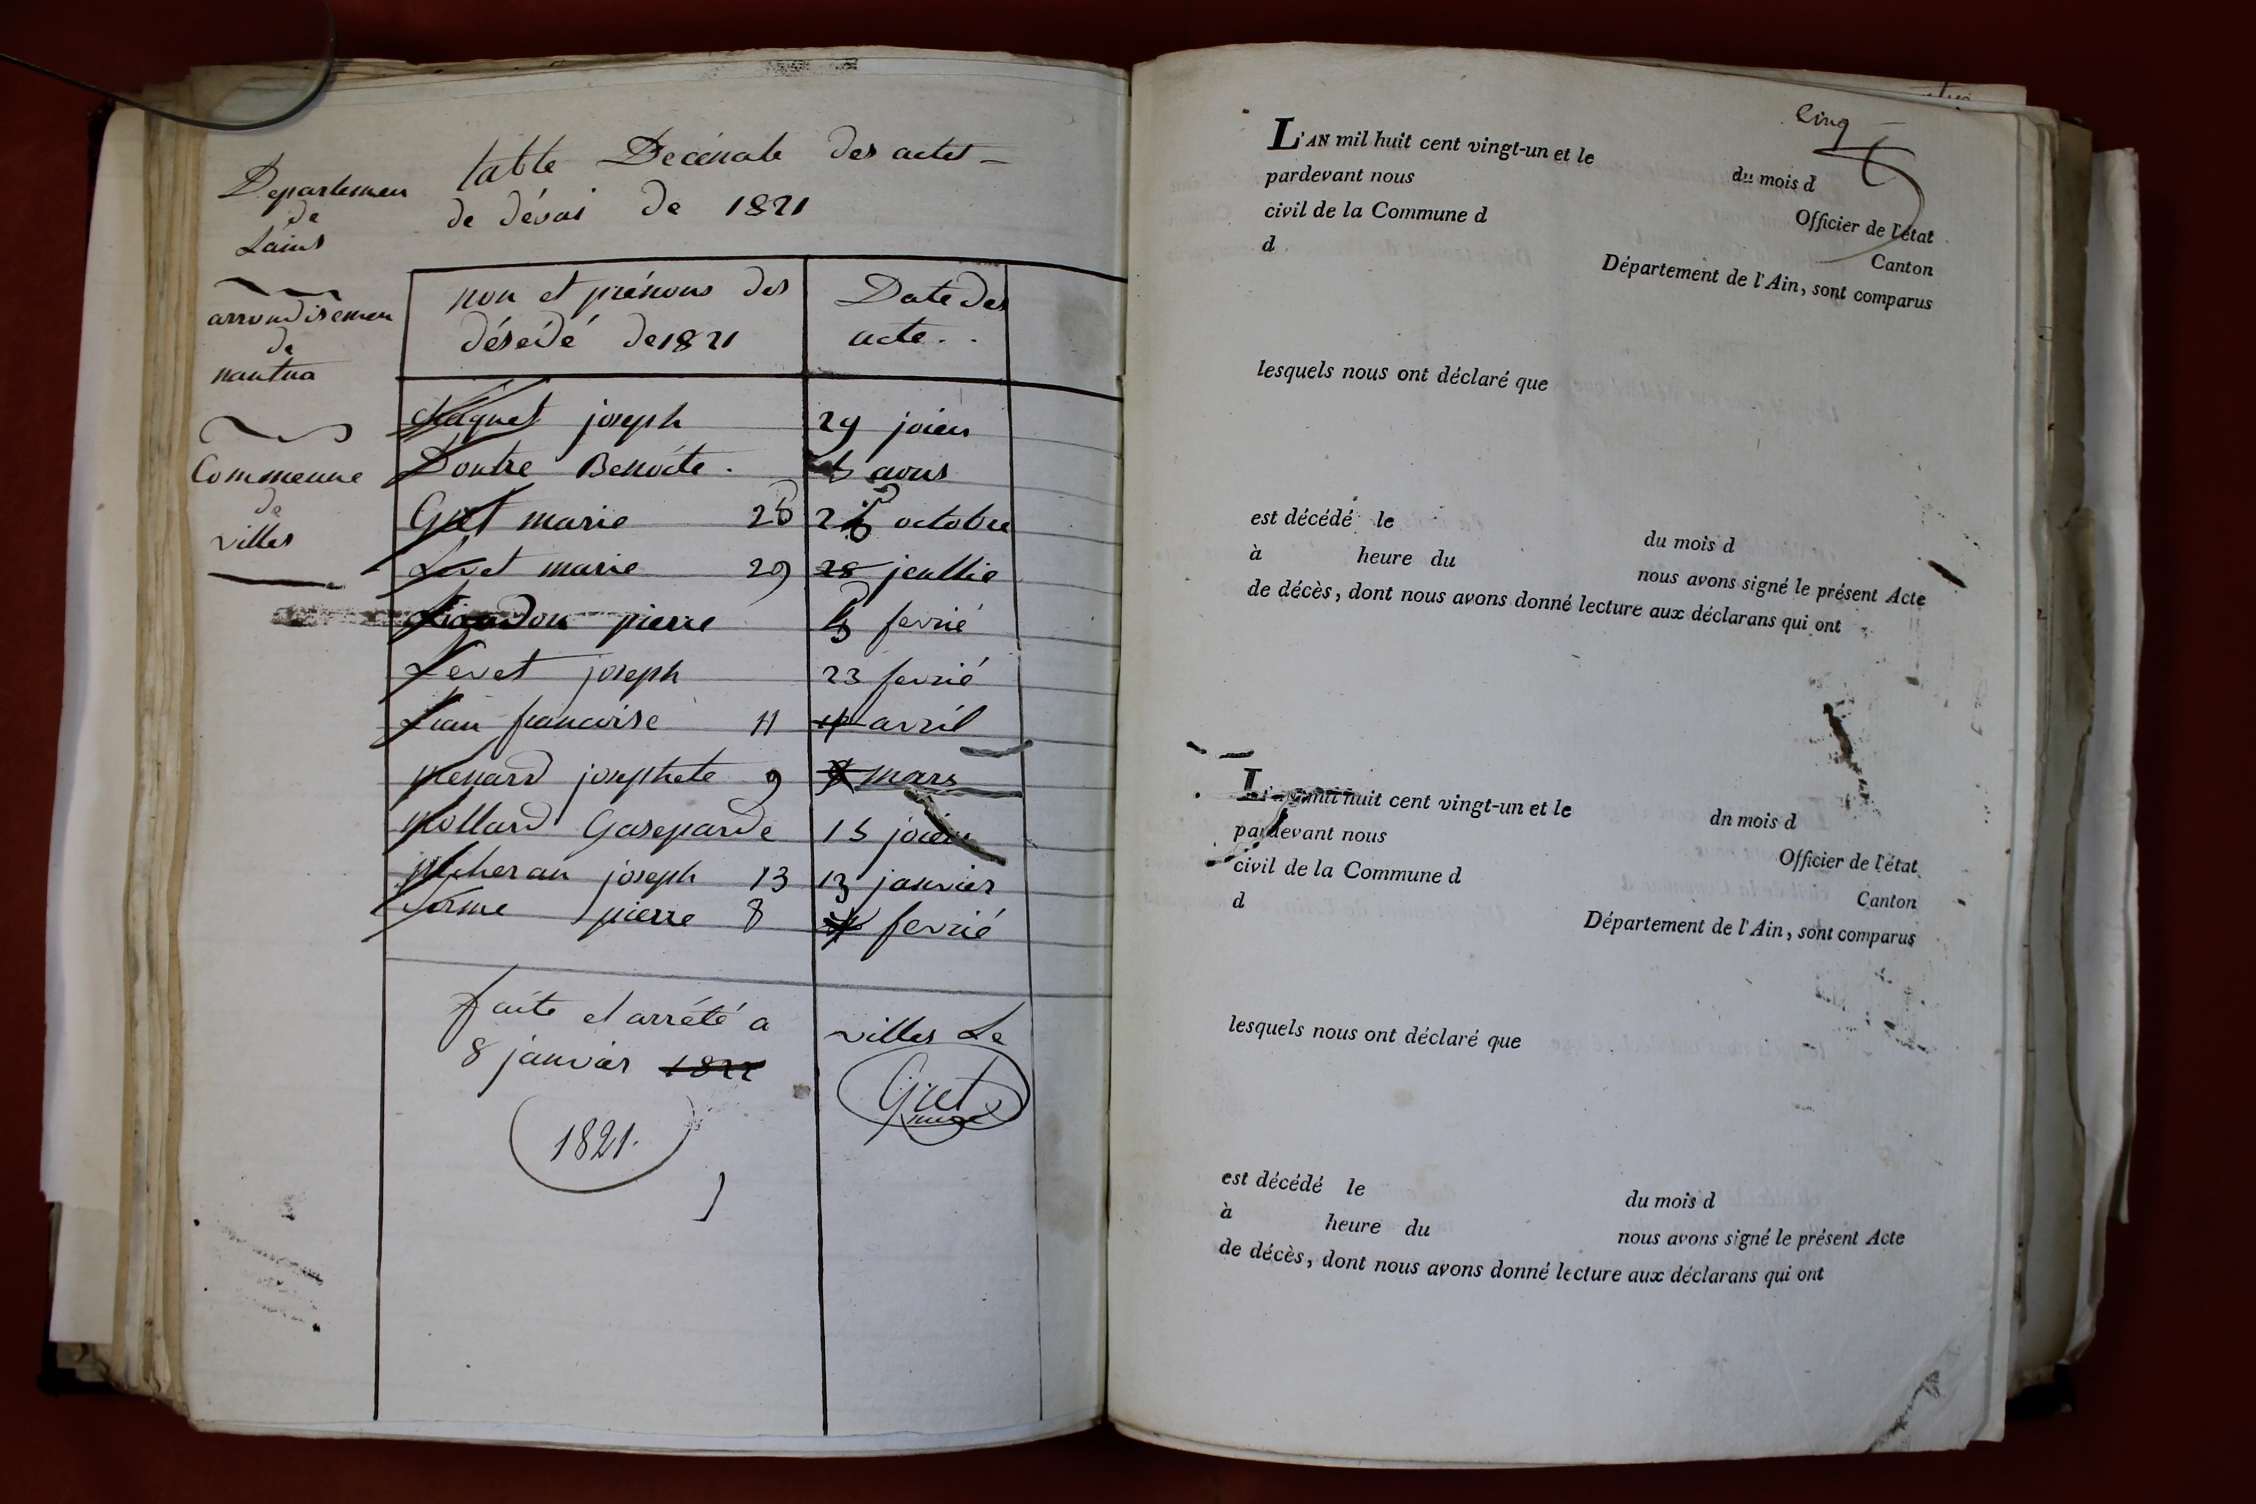 table Decénale des actes
de dévai de 1821
Departemen
de
Lains
arrondisemen
de
nantua
Commeune
de
villes
non et prénons des
désédé de 1821
Date des
acte..
joseph 29 joien
Doutre Benoite. aous
Gret marie 25 octobre
Levet marie 29 28 jeullie
pierre fevrié
Levet joseph 23 fevrié
francoise 11 avril
menard josephete 9 mars
mollard Gaseparde 15 joien
micheran joseph 13 13 janvier
pierre 8 fevrié
faite et arrété a villes Le
8 janvier 1822
Gret
maire
1821.
Cinq
L'AN mil huit cent vingt-un et le du mois d
pardevant nous Officier de l'état
civil de la Commune d Canton
d Département de l'Ain, sont comparus
lesquels nous ont déclaré que
est décédé le du mois d
à heure du nous avons signé le présent Acte
de décès, dont nous avons donné lecture aux déclarans qui ont
L'AN mil huit cent vingt-un et le dn mois d
pardevant nous Officier de l'état
civil de la Commune d Canton
d Département de l'Ain, sont comparus
lesquels nous ont déclaré que
est décédé le du mois d
à heure du nous avons signé le présent Acte
de décès, dont nous avons donné lecture aux déclarans qui ont